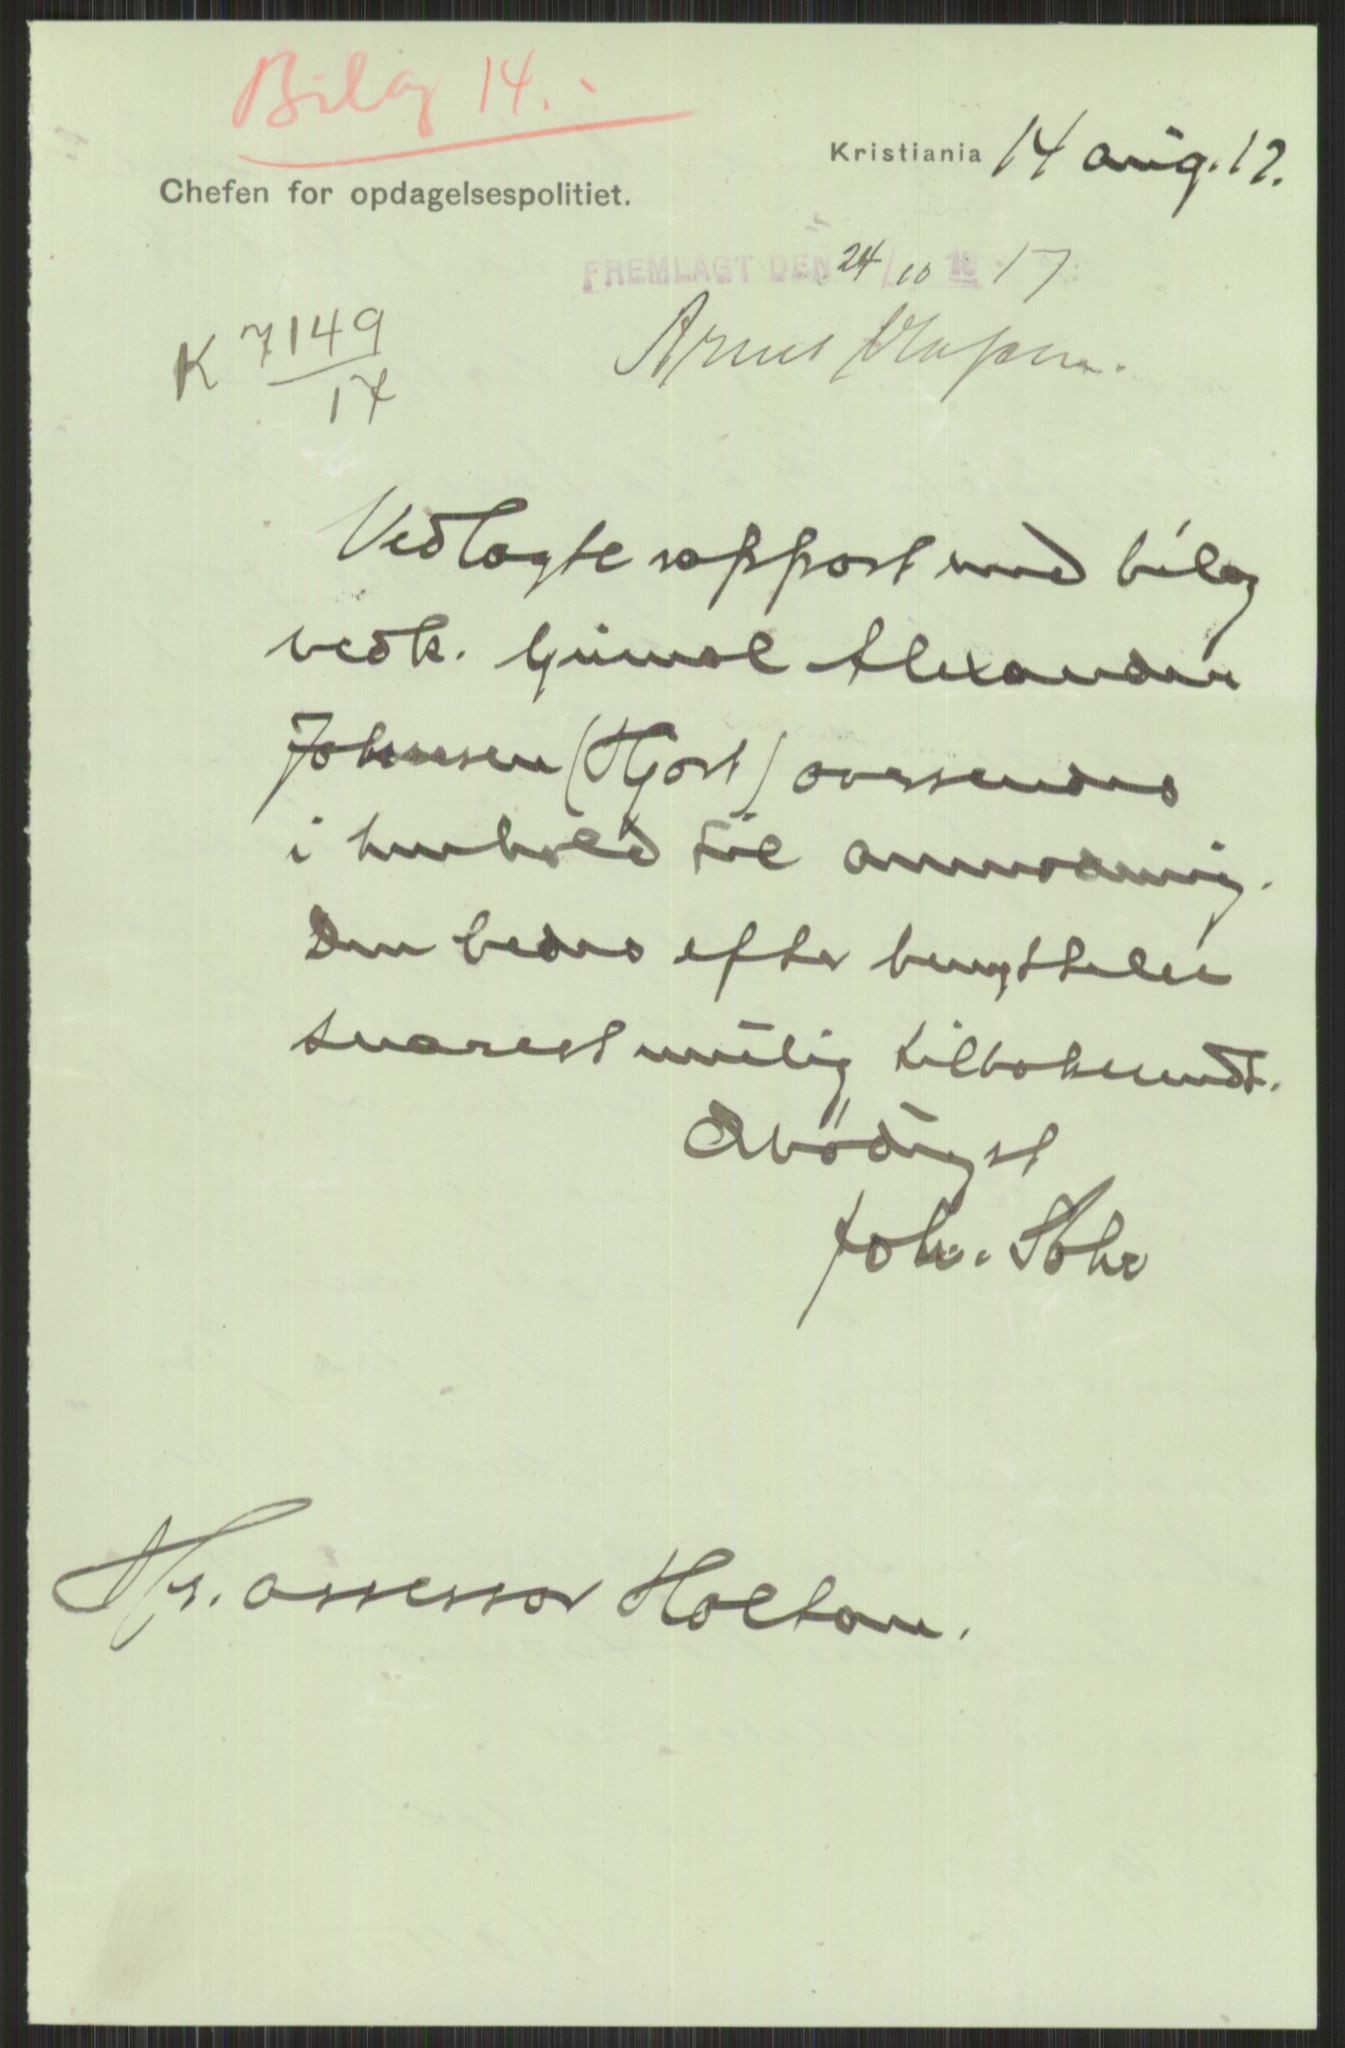 Bilag 14.-
Kristiania 14 aug. 17.
Chefen for opdagelsespolitiet.
FREMLAGT DEN 24/10 19 17
K 7149
17
Vedlagte rapport med bilag
vedk. Gunval Alexander
Johnsen (Hjort) oversendes
i henhold til anmodning.
Den bedes efter benyttelse
snarest mulig tilbakesendt.
Ærbødigst
Joh. Søhr
Hr. assessor Holtan.